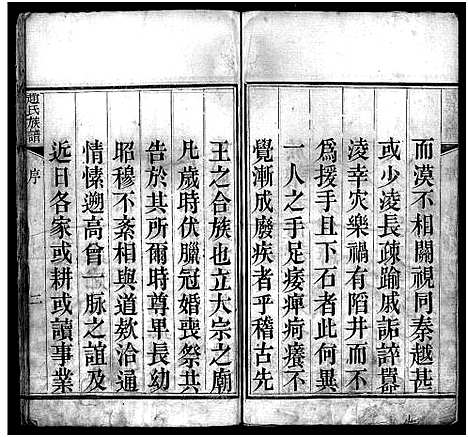 而漠不相關視同秦越甚
或少淩長疎踰戚詬誶囂
淩幸灾樂禍有陷井而不
爲援手且下石者此何異
一人之手足痿痺疴癢不
覺漸成廢疾者乎稽古先
王之合族也立大宗之廟
凡歲時伏臘冠婚喪祭共
告於其所爾時尊卑長幼
昭穆不紊相與道欵洽通
情愫遡高曾一脉之誼及
近日各家或耕或讀事業
趙氏族譜
序
二